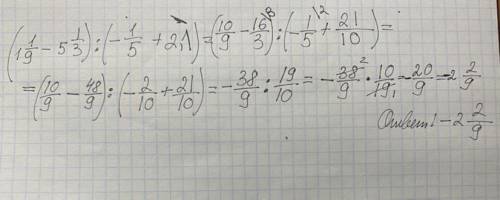 (1 1/9 - 5 1/3) : (-1/5 + 2,1) = (10/9 - 16/3 \3) : (-1/5 \2 + 21/10) =
= (10/9 - 48/9) : (-2/10 + 21/10) = -38/9 : 19/10 = -38 2/9 · 10/19 1 = -20/9 = -2 2/9
Ответ: -2 2/9